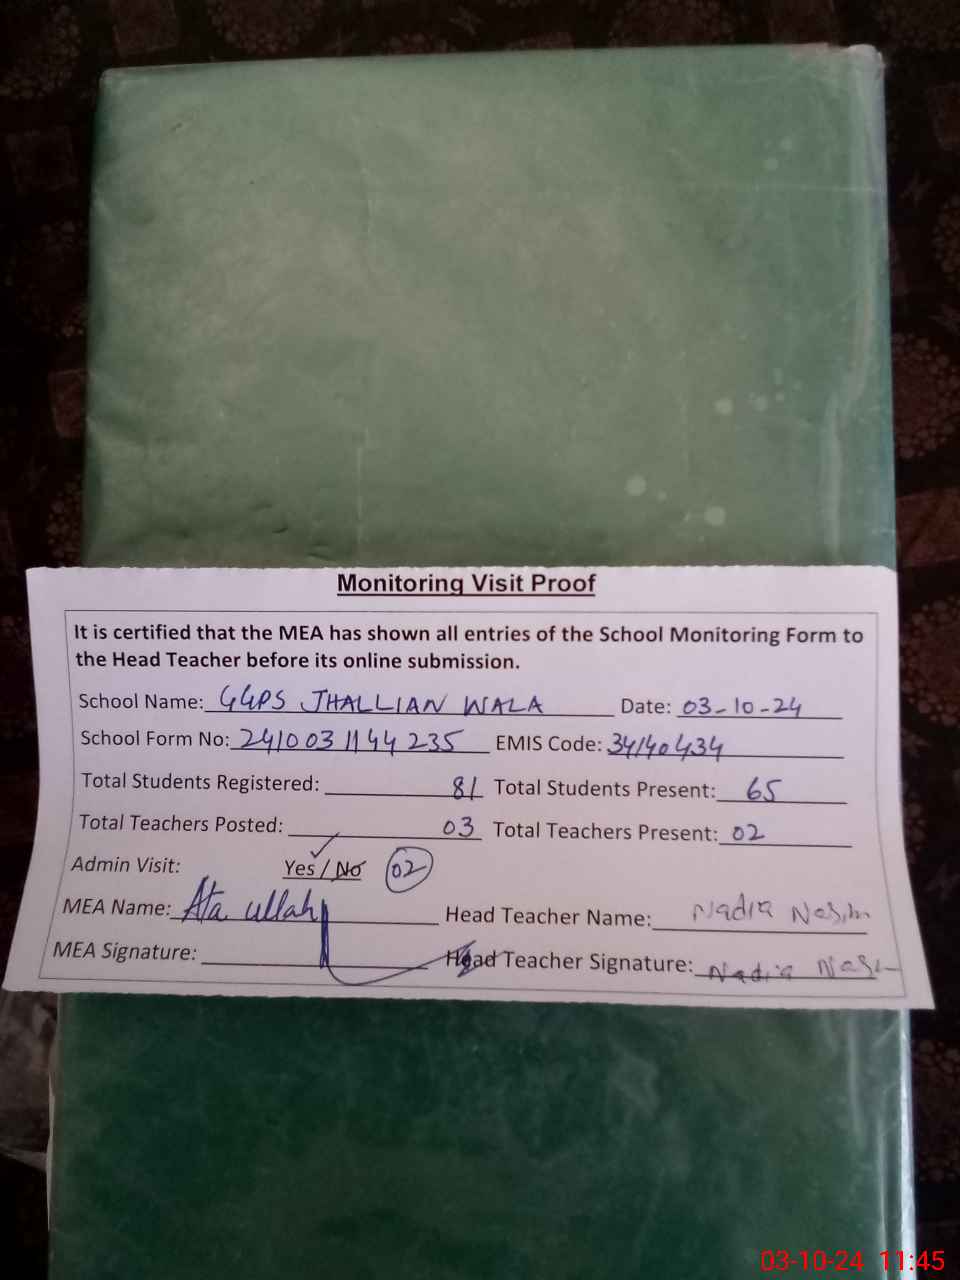 Monitoring Visit Proof
It is certified that the MEA has shown all entries of the School Monitoring Form to
the Head Teacher before its online submission.
School Name: GGPS JHALLIAN WALA Date: 03-10-24
School Form No: 2410031144235 EMIS Code: 34140434
Total Students Registered: 81 Total Students Present: 65
Total Teachers Posted: 03 Total Teachers Present: 02
Admin Visit: Yes / No 02
MEA Name: Ata ullah Head Teacher Name: Nadia Nasim
MEA Signature: Head Teacher Signature: Nadia
03-10-24 11:45